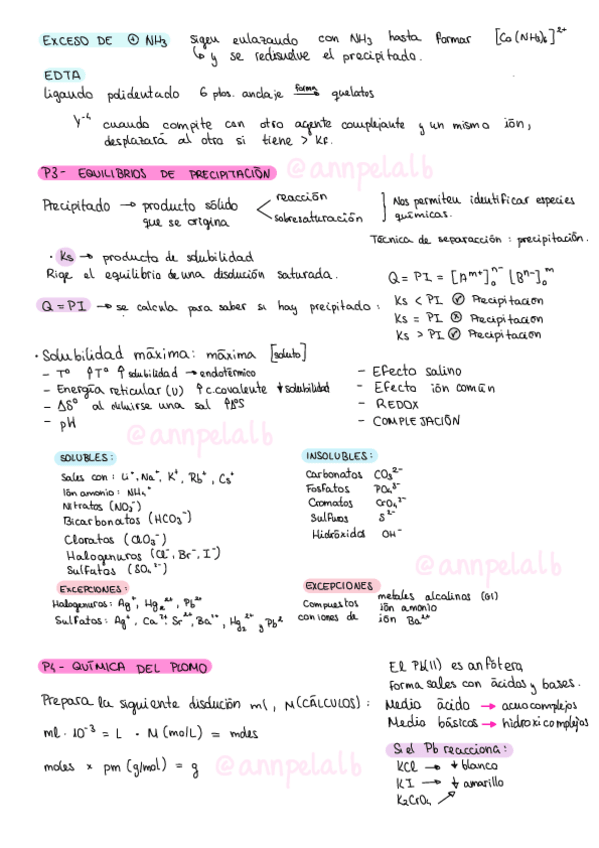 EXCESO DE ⊕ NH3 siguen enlazando con NH3 hasta formar [Co(NH3)6]2+
↳ y se redisuelve el precipitado.
EDTA
Ligando polidentado 6 ptos. anclaje forma→ quelatos
Y-4 cuando compite con otro agente complejante y un mismo ión,
desplazará al otro si tiene > Kf.
P3- EQUILIBRIOS DE PRECIPITACIÓN
@annpelalb
Precipitado → producto sólido que se origina < reacción
sobresaturación ] Nos permiten identificar especies químicas.
Técnica de separacción: precipitación.
· Ks → producto de solubilidad
Rige el equilibrio de una disolución saturada.
Q = PI = [Am+]o n- [Bn-]o m
Q = PI → se calcula para saber si hay precipitado:
Ks < PI ✓ Precipitacion
Ks = PI ⊗ Precipitacion
Ks > PI ✓ Precipitacion
· Solubilidad máxima: máxima [soluto]
- Tº ↑Tº ↑ solubilidad → endotérmico
- Energía reticular (U) ↑ c. covalente ↓ solubilidad
- ΔSº al diluirse una sal ↑ΔS
- pH
- Efecto salino
- Efecto ión común
- REDOX
- COMPLEJACIÓN
@annpelalb
SOLUBLES:
Sales con: Li+, Na+, K+, Rb+, Cs+
Ión amonio: NH4+
Nitratos (NO3-)
Bicarbonatos (HCO3-)
Cloratos (ClO3-)
Halogenuros (Cl-, Br-, I-)
Sulfatos (SO4 2-)
INSOLUBLES:
Carbonatos CO3 2-
Fosfatos PO4 3-
Cromatos CrO4 2-
Sulfuros S 2-
Hidróxidos OH-
@annpelalb
EXCEPCIONES:
Halogenuros: Ag+, Hg2 2+, Pb2+
Sulfatos: Ag+, Ca2+ Sr2+, Ba2+, Hg2 2+ y Pb2
EXCEPCIONES
Compuestos con iones de metales alcalinos (G1)
ión amonio
ión Ba2+
P4- QUÍMICA DEL PLOMO
Prepara la siguiente disolución ml, M (CÁLCULOS):
ml · 10-3 = L · M (mol/L) = moles
moles x pm (g/mol) = g
@annpelalb
El Pb(II) es anfótera
forma sales con ácidos y bases.
Medio ácido → acuocomplejos
Medio básicos → hidroxicomplejos
Si el Pb reacciona:
KCl → ↓ blanco
KI → ↓ amarillo
K2CrO4 ↗